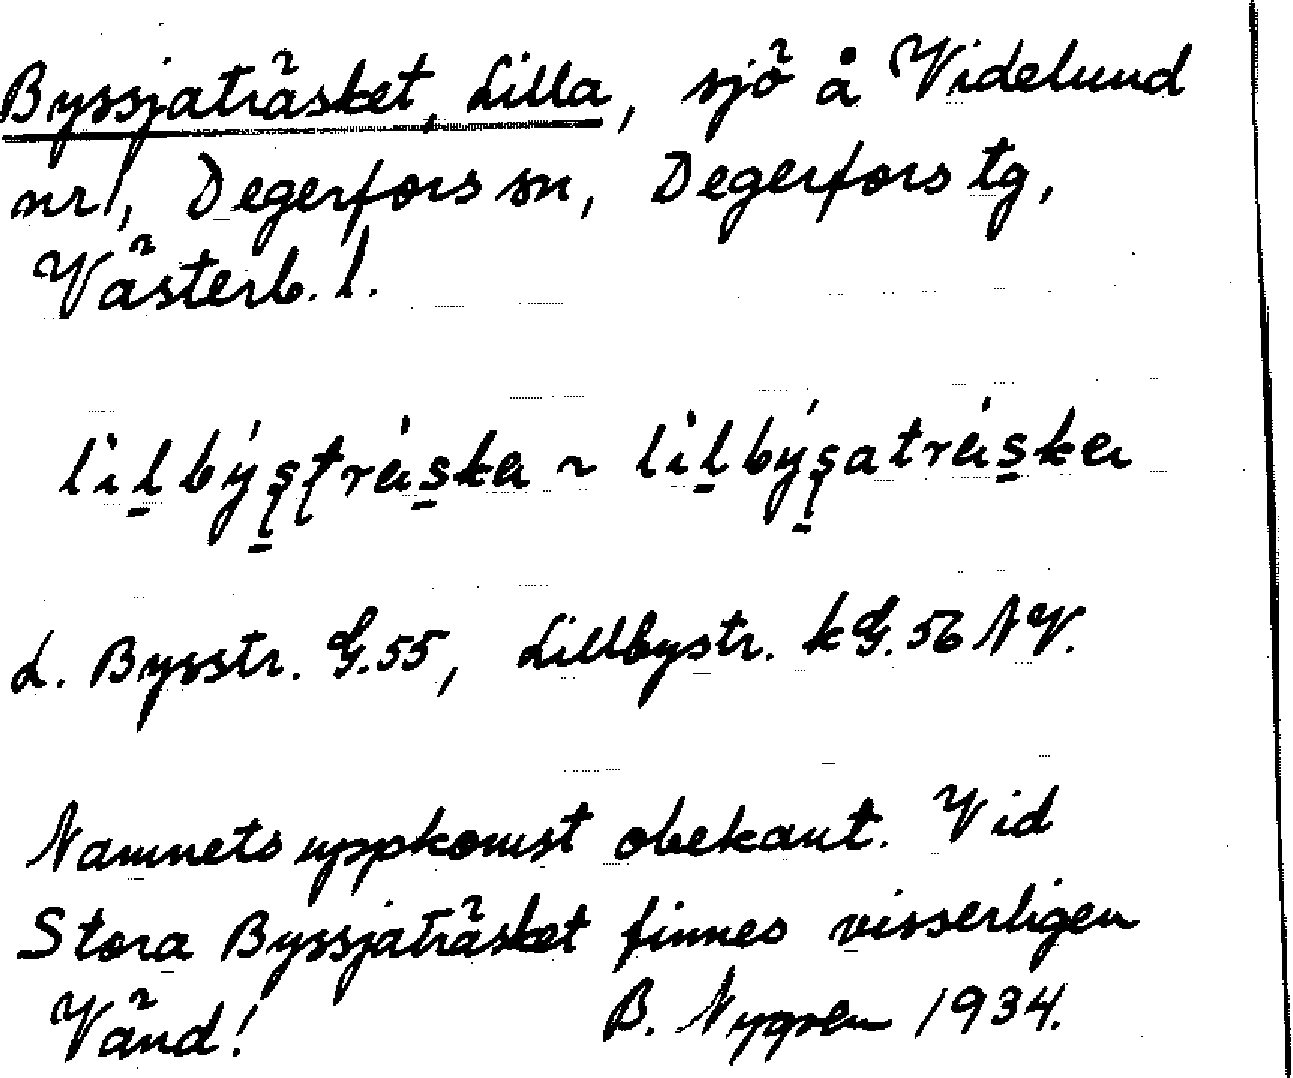 Byssjaträsket, Lilla, sjö å Videlund
nr 1, Degerfors sn, Degerfors tg,
Västerb. l.
L. Bysstr. G.55, Lillbystr. kG.56 NV.
Namnets uppkomst obekant. Vid
Stora Byssjaträsket finnes visserligen
Vänd! B. Nygren 1934.